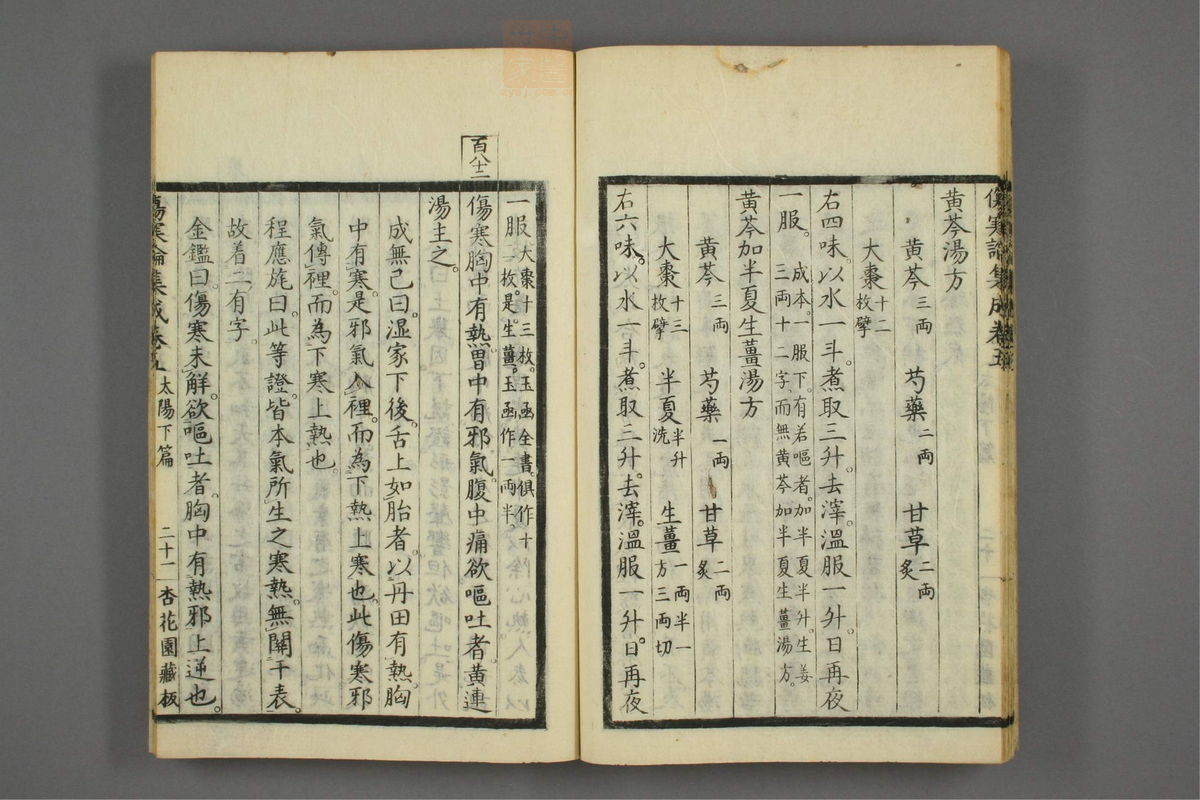 傷寒論集成卷五
黃芩湯方
黃芩三両 芍藥二両 甘草二両炙
大棗十二枚擘
右四味。以水一斗。煮取三升。去滓。溫服一升。日再夜
一服。成本。一服下。有若嘔者。加半夏半升。生姜三両十二字。而無黃芩加半夏生薑湯方。
黃芩加半夏生薑湯方
黃芩三両 芍藥一両 甘草二両炙
大棗十三枚擘 半夏半升洗 生薑一両半一方三両切
右六味。以水一斗。煮取三升。去滓。溫服一升。日再夜
一服大棗十三枚。玉函全書。俱作十二枚。是。生薑。玉函作一両半。
百八十二
傷寒胸中有熱。胃中有邪氣。腹中痛。欲嘔吐者。黃連
湯主之。
成無己曰。湿家下後。舌上如胎者。以丹田有熱。胸
中有寒。是邪氣入裡。而為下熱上寒也。此傷寒邪
氣傳裡。而為下寒上熱也。
程應旄曰。此等證。皆本氣所生之寒熱。無關于表。
故着二有字。
金鑑曰。傷寒未解。欲嘔吐者。胸中有熱邪上逆也。
傷寒論集成卷五 太陽下篇 二十二 杏花園藏板